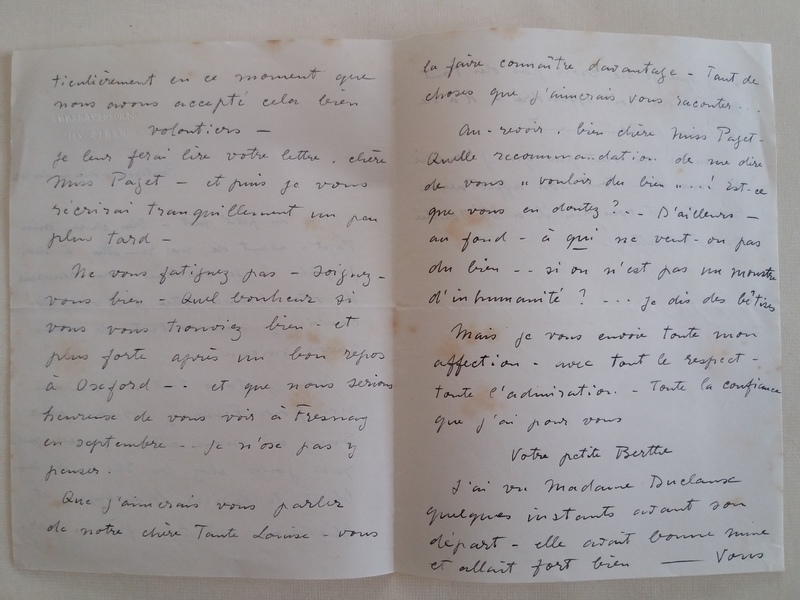 ticulièrement en ce moment que
nous avons accepté cela bien
volontiers —
Je leur ferai lire votre lettre, chère
Miss Paget — et puis je vous
récrirai tranquillement un peu
plus tard —
Ne vous fatiguez pas — soignez-
vous bien — Quel bonheur si
vous vous trouviez bien - et
plus forte après un bon repos
à Oxford -- et que nous serions
heureuse de vous voir à Fresnay
en septembre -- Je n'ose pas y
penser.
Que j'aimerais vous parler
de notre chère Tante Louise - vous
la faire connaître davantage - Tant de
choses que j'aimerais vous raconter...
Au-revoir, bien chère Miss Paget-
Quelle recommandation de me dire
de vous "vouloir du bien"...! Est-ce
que vous en doutez?.. D'ailleurs —
au fond - à qui ne veut-on pas
du bien -- si on n'est pas un monstre
d'inhumanité ? --- Je dis des bêtises
Mais je vous envoie toute mon
affection - avec tout le respect -
toute l'admiration - Toute la confiance
que j'ai pour vous
Votre petite Berthe
J'ai vu Madame Duclaux
quelques instants avant son
départ - elle avait bonne mine
et allait fort bien — Vous